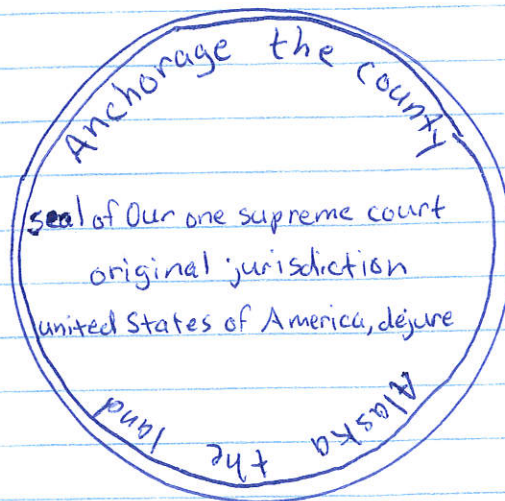 Anchorage the county
seal of Our one supreme court
original jurisdiction
united States of America, dejure
Alaska the land